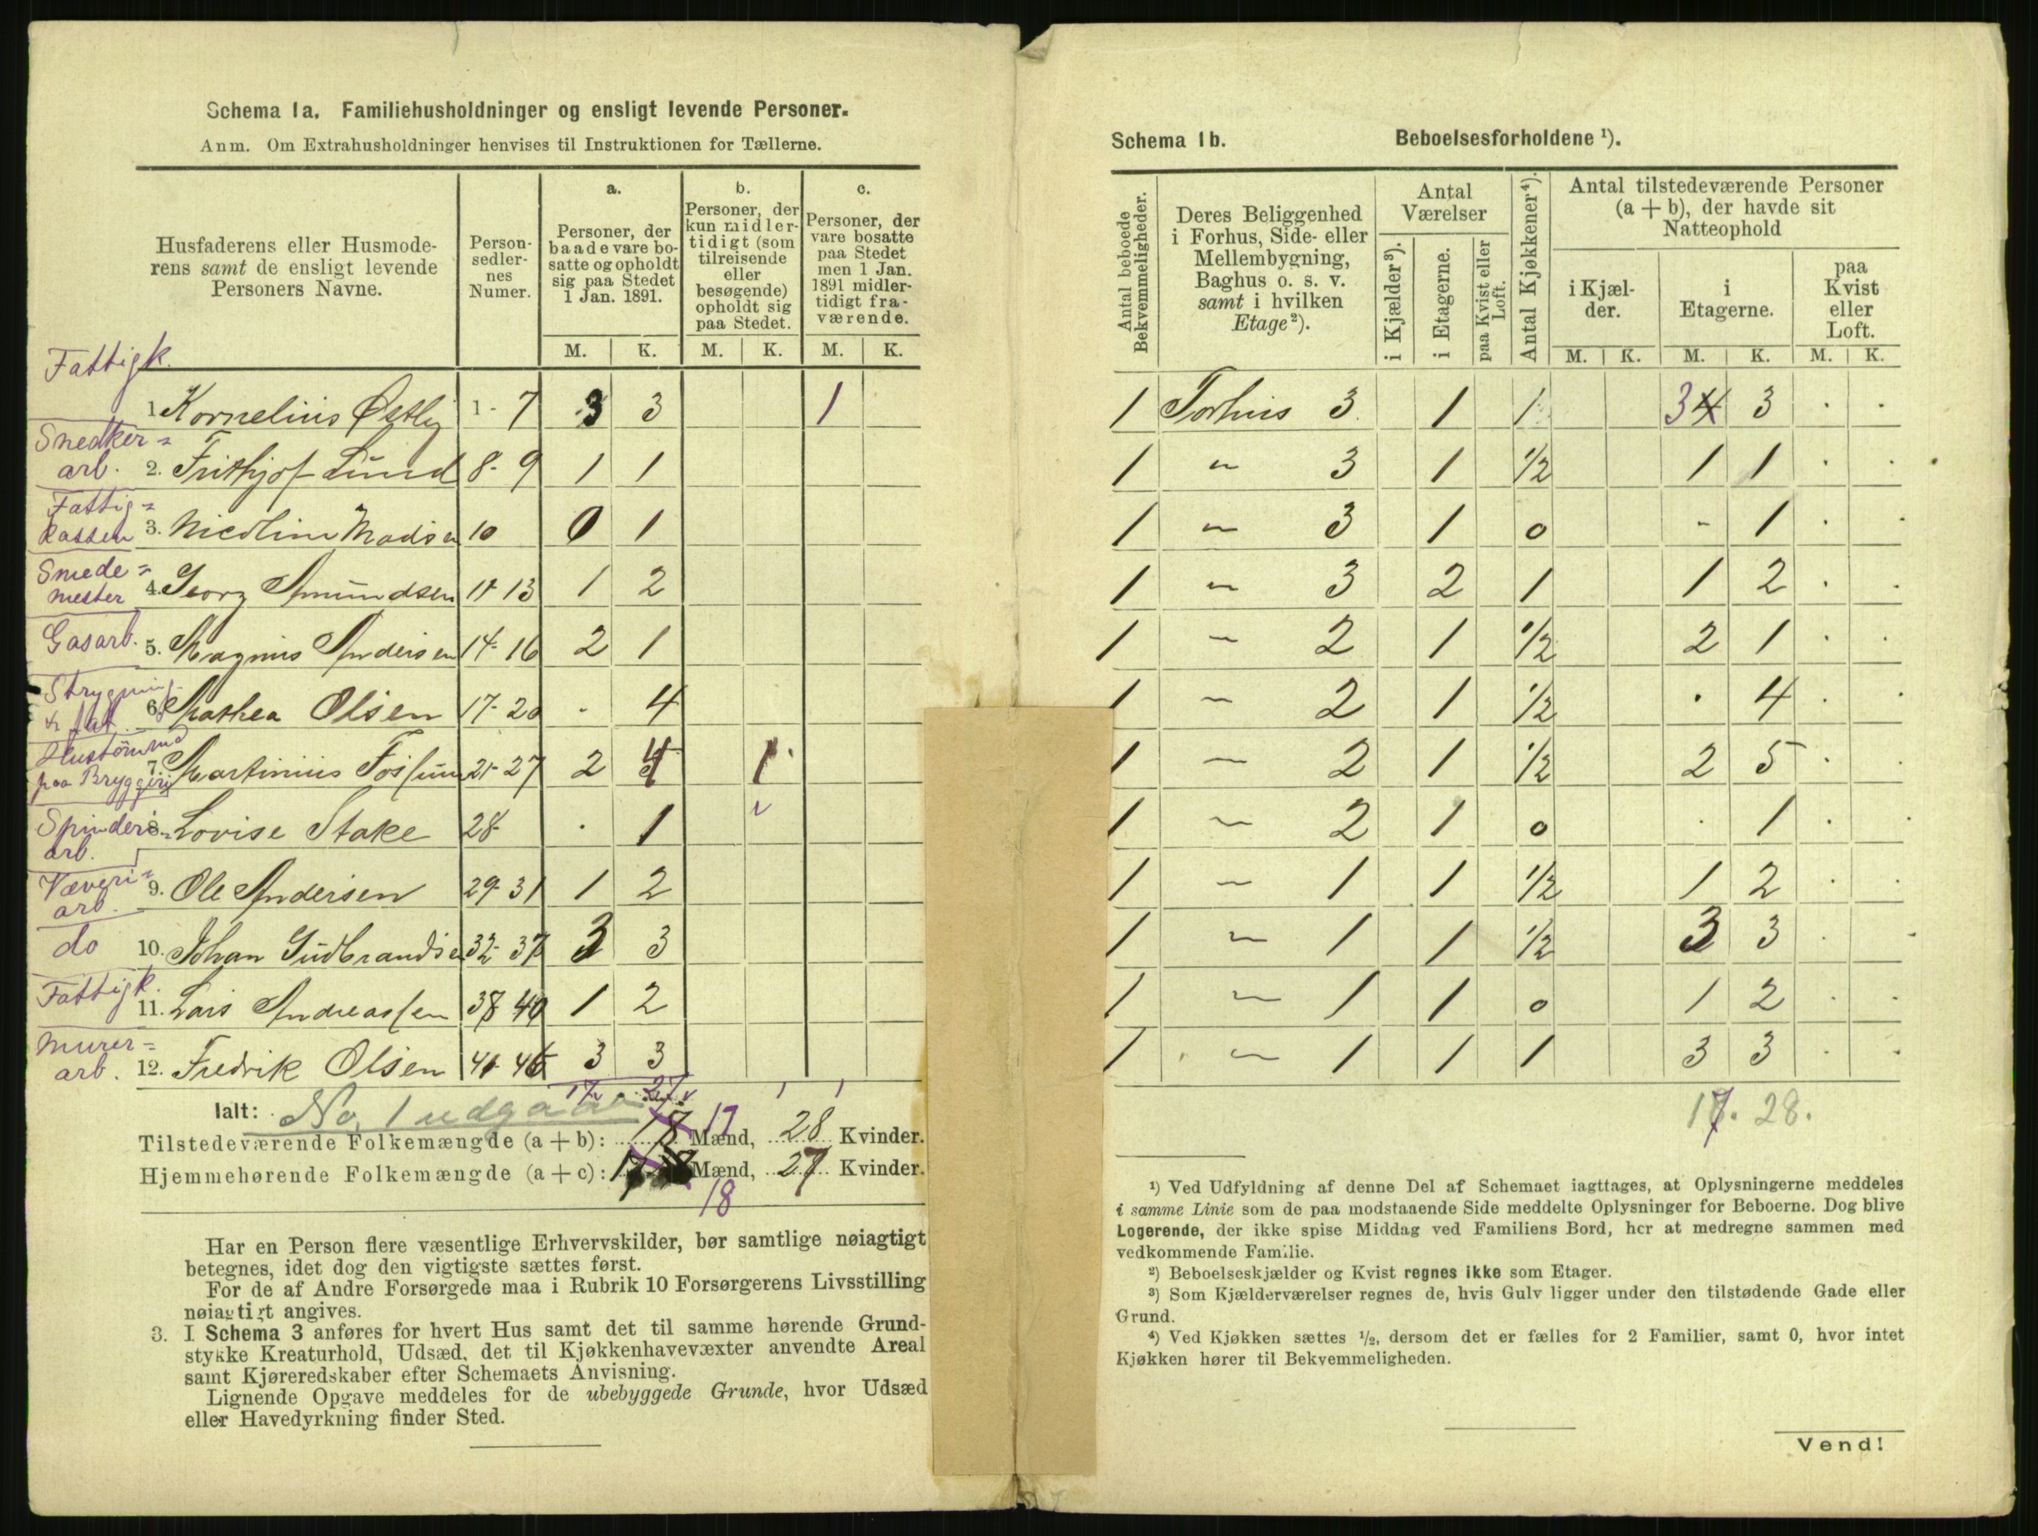 Schema 1a. Familiehusholdninger og ensligt levende Personer.
Anm. Om Extrahusholdninger henvises til Instruktionen for Tællerne.
Husfaderens eller Husmoderens samt de ensligt levende Personers Navne.
Personsedlernes Numer.
a. Personer, der baade vare bosatte og opholdt sig paa Stedet 1 Jan. 1891.
b. Personer, der kun midlertidigt (som tilreisende eller besøgende) opholdt sig paa Stedet.
c. Personer, der vare bosatte paa Stedet men 1 Jan. 1891 midlertidigt fraværende.
M. K. M. K. M. K.
Fattigk. 1 Kornelius Østby 1-7 3 3 1
Snedker=arb. 2. Frithjof Lund 8-9 1 1
Fattig=kassen 3. Nicoline Madsen 10 0 1
Smede=mester 4. Georg Amundsen 11-13 1 2
Gasarb. 5. Magnus Andersen 14-16 2 1
Strygning & fat. 6. Mathea Olsen 17-20 . 4
paa Bryggeri 7. Martinius Fossum 21-27 2 4 1
Spinderi=arb. 8. Lovise Stake 28 . 1
Væveri=arb. 9. Ole Andersen 29-31 1 2
do 10. Johan Gudbrandsen 32-37 3 3
Fattigk. 11. Lars Andreassen 38-40 1 2
Murer=arb. 12. Fredrik Olsen 41-46 3 3
17 27 1 1
Ialt: No. 1 udgaar
Tilstedeværende Folkemængde (a + b): 18 17 Mænd, 28 Kvinder.
Hjemmehørende Folkemængde (a + c): 17 18 Mænd, 27 Kvinder.
18
Har en Person flere væsentlige Erhvervskilder, bør samtlige nøiagtigt
betegnes, idet dog den vigtigste sættes først.
For de af Andre Forsørgede maa i Rubrik 10 Forsørgerens Livsstilling
nøiagtigt angives.
3. I Schema 3 anføres for hvert Hus samt det til samme hørende Grund-
stykke Kreaturhold, Udsæd, det til Kjøkkenhavevæxter anvendte Areal
samt Kjøreredskaber efter Schemaets Anvisning.
Lignende Opgave meddeles for de ubebyggede Grunde, hvor Udsæd
eller Havedyrkning finder Sted.
Schema 1b. Beboelsesforholdene ¹).
Antal beboede Bekvemmeligheder.
Deres Beliggenhed i Forhus, Side- eller Mellembygning, Baghus o. s. v. samt i hvilken Etage²).
Antal Værelser
i Kjælder³).
i Etagerne.
paa Kvist eller Loft.
Antal Kjøkkener⁴).
Antal tilstedeværende Personer (a + b), der havde sit Natteophold
i Kjælder.
i Etagerne.
paa Kvist eller Loft.
M. K. M. K. M. K.
1 Forhus 3 1 1 3 4 3 . .
1 " 3 1 1/2 1 1 . .
1 " 3 1 0 - 1 . .
1 " 3 2 1 1 2 . .
1 " 2 1 1/2 2 1 . .
1 " 2 1 1/2 . 4 . .
1 " 2 1 1/2 2 5 . .
1 " 2 1 0 . 1 . .
1 " 1 1 1/2 1 2 . .
1 " 1 1 1/2 3 3 . .
1 " 1 1 0 1 2 . .
1 " 1 1 1 3 3 . .
17. 28.
¹) Ved Udfyldning af denne Del af Schemaet iagttages, at Oplysningerne meddeles
i samme Linie som de paa modstaaende Side meddelte Oplysninger for Beboerne. Dog blive
Logerende, der ikke spise Middag ved Familiens Bord, her at medregne sammen med
vedkommende Familie.
²) Beboelseskjælder og Kvist regnes ikke som Etager.
³) Som Kjælderværelser regnes de, hvis Gulv ligger under den tilstødende Gade eller
Grund.
⁴) Ved Kjøkken sættes ½, dersom det er fælles for 2 Familier, samt 0, hvor intet
Kjøkken hører til Bekvemmeligheden.
Vend!